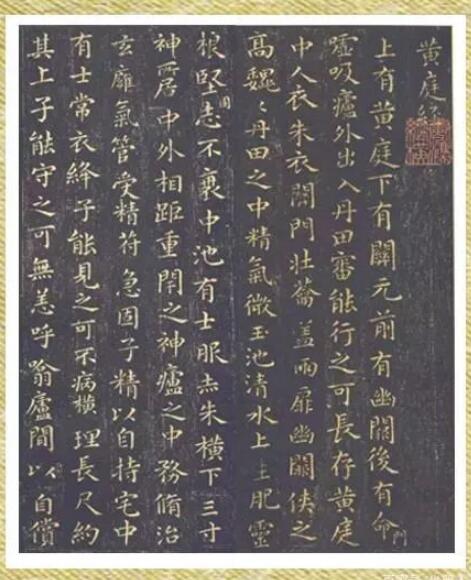 黄庭經
上有黄庭下有關元前有幽闕後有命門
噓吸廬外出入丹田審能行之可長存黄庭
中人衣朱衣關門壯蘥盖兩扉幽闕俠之
高魏〻丹田之中精氣微玉池清水上生肥靈
根堅固志不衰中池有士服赤朱横下三寸
神所居中外相距重閉之神廬之中務脩治
玄廱氣管受精符急固子精以自持宅中
有士常衣絳子能見之可不病横理長尺約
其上子能守之可無恙呼噏廬間以自償